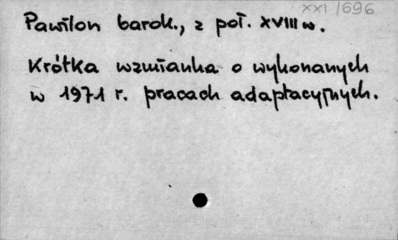 XXI/696
Pawilon barok., z poł. XVIII w.
Krótka wzmianka o wykonanych
w 1971 r. pracach adaptacyjnych.